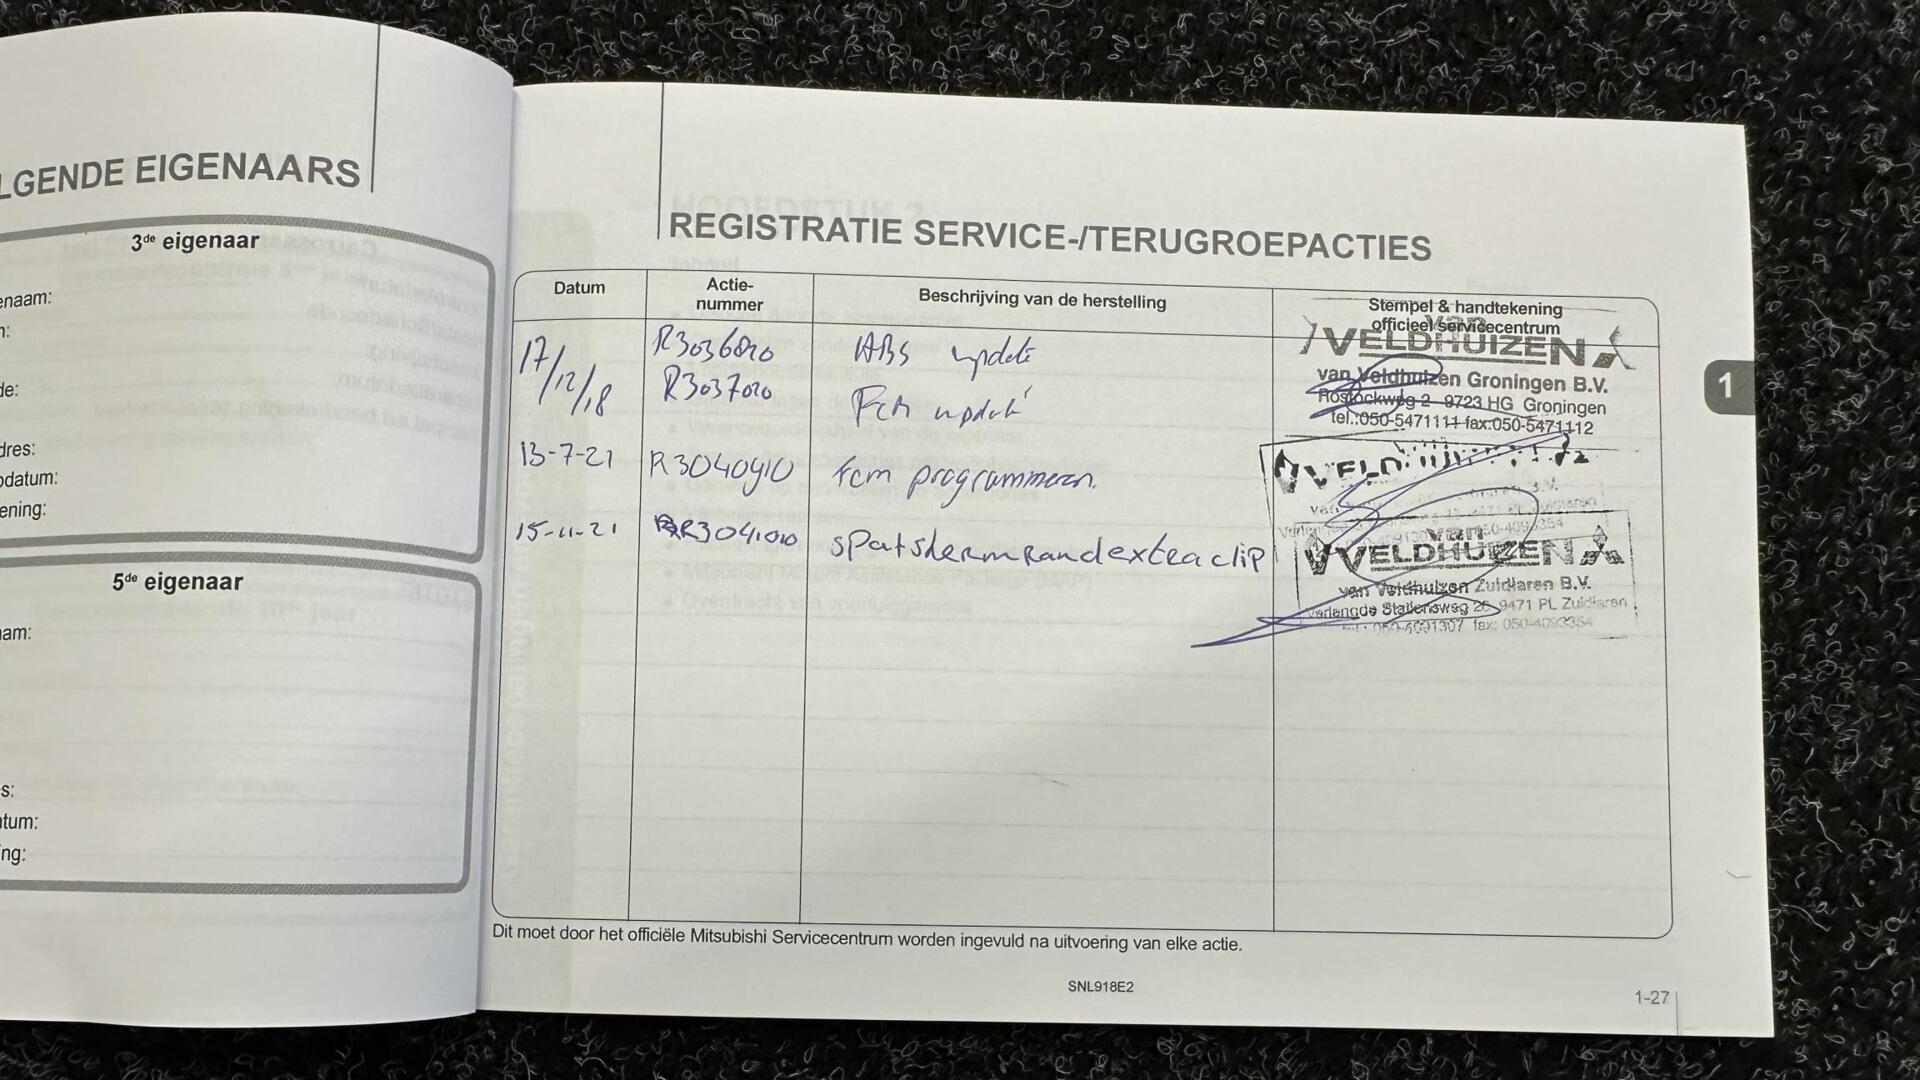 LGENDE EIGENAARS
3de eigenaar
enaam:
n:
de:
dres:
odatum:
ening:
5de eigenaar
am:
s:
tum:
ng:
REGISTRATIE SERVICE-/TERUGROEPACTIES
Datum
Actie-
nummer
Beschrijving van de herstelling
Stempel & handtekening
officieel servicecentrum
17/12/18
R3036020
ABS update
R3037020
Fcm update
van
VELDHUIZEN
van Veldhuizen Groningen B.V.
Rostockweg 2 9723 HG Groningen
tel.:050-5471111 fax:050-5471112
13-7-21
R3040910
Fcm programmeren.
15-11-21
R3041010
spatschermrandextraclip
van
VELDHUIZEN
van Veldhuizen Zuidlaren B.V.
Verlengde Stationsweg 26 9471 PL Zuidlaren
tel.: 050-4091307 fax: 050-4093354
Dit moet door het officiële Mitsubishi Servicecentrum worden ingevuld na uitvoering van elke actie.
SNL918E2
1-27
1